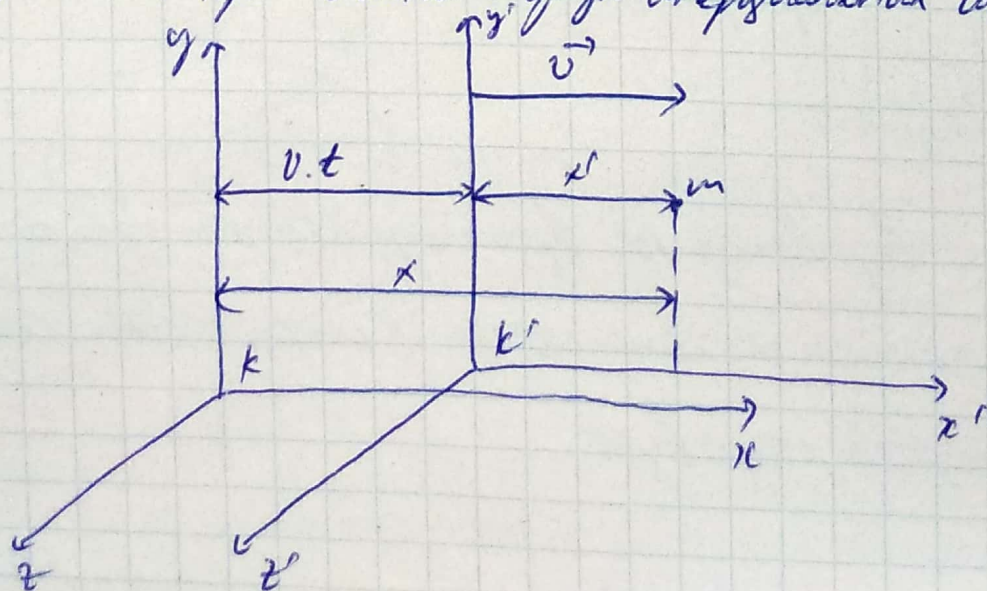 y y' v⃗
v.t x' m
x
k k'
x x'
z z'